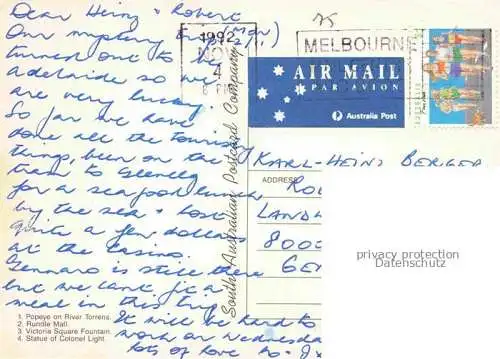 Dear Heinz + Robert
Our mystery trip (Mov!!)
turned out to be
adelaide so we
are very lucky.
So far we have
done all the touristy
things, been on the
tram to Glenelg
for a seafood lunch
by the sea + lost
quite a few dollars
at the Casino.
Gennaro is still there
but we cant fit a
meal in this trip
It will be hard to
work on Wednesday
lots of love to
1. Popeye on River Torrens.
2. Rundle Mall.
3. Victoria Square Fountain.
4. Statue of Colonel Light.
South Australian Postcard Company
1992
NOV
4
MELBOURNE
AIR MAIL
PAR AVION
Australia Post
KARL-HEINZ BERGER
ADDRESS
LANDW
8000
privacy protection
Datenschutz